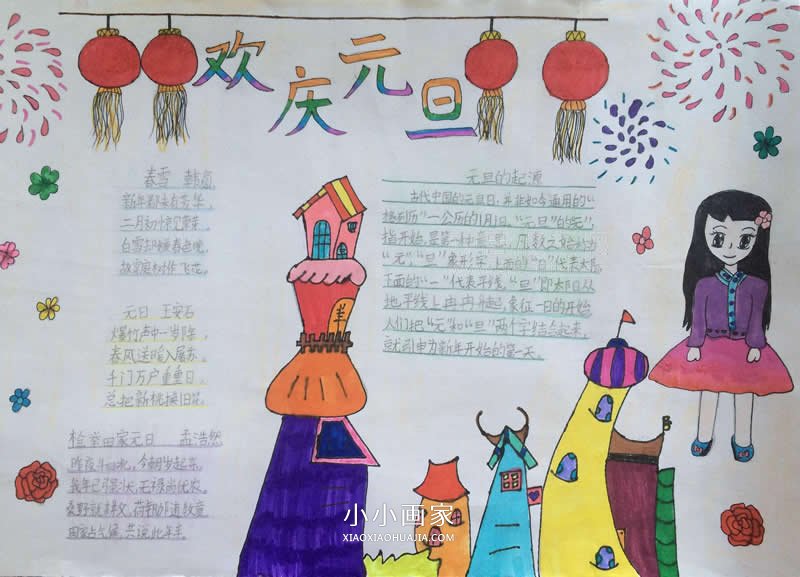 欢庆元旦
春雪 韩愈
新年都未有芳华,
二月初惊见草芽。
白雪却嫌春色晚,
故穿庭树作飞花。
元日 王安石
爆竹声中一岁除,
春风送暖入屠苏。
千门万户曈曈日,
总把新桃换旧符。
田家元日 孟浩然
昨夜斗回北,今朝岁起东。
我年已强壮,无禄尚忧农。
桑野就耕父,荷锄随牧童。
田家占气候,共说此年丰。
元旦的起源
古代中国的元旦日,并非如今通用的“
格列历”一公历的1月1日。“元旦”的“元”,
指开始,是第一的意思,凡数之始称为
“元”;“旦”象形字,上面的“日”代表太阳,
下面的“一”代表平线,“旦”即太阳从
地平线上冉冉升起,象征一日的开始
人们把“元”和“旦”两个字结合起来,
就引申为新年开始的第一天。
小小画家
XIAOXIAOHUAJIA.COM